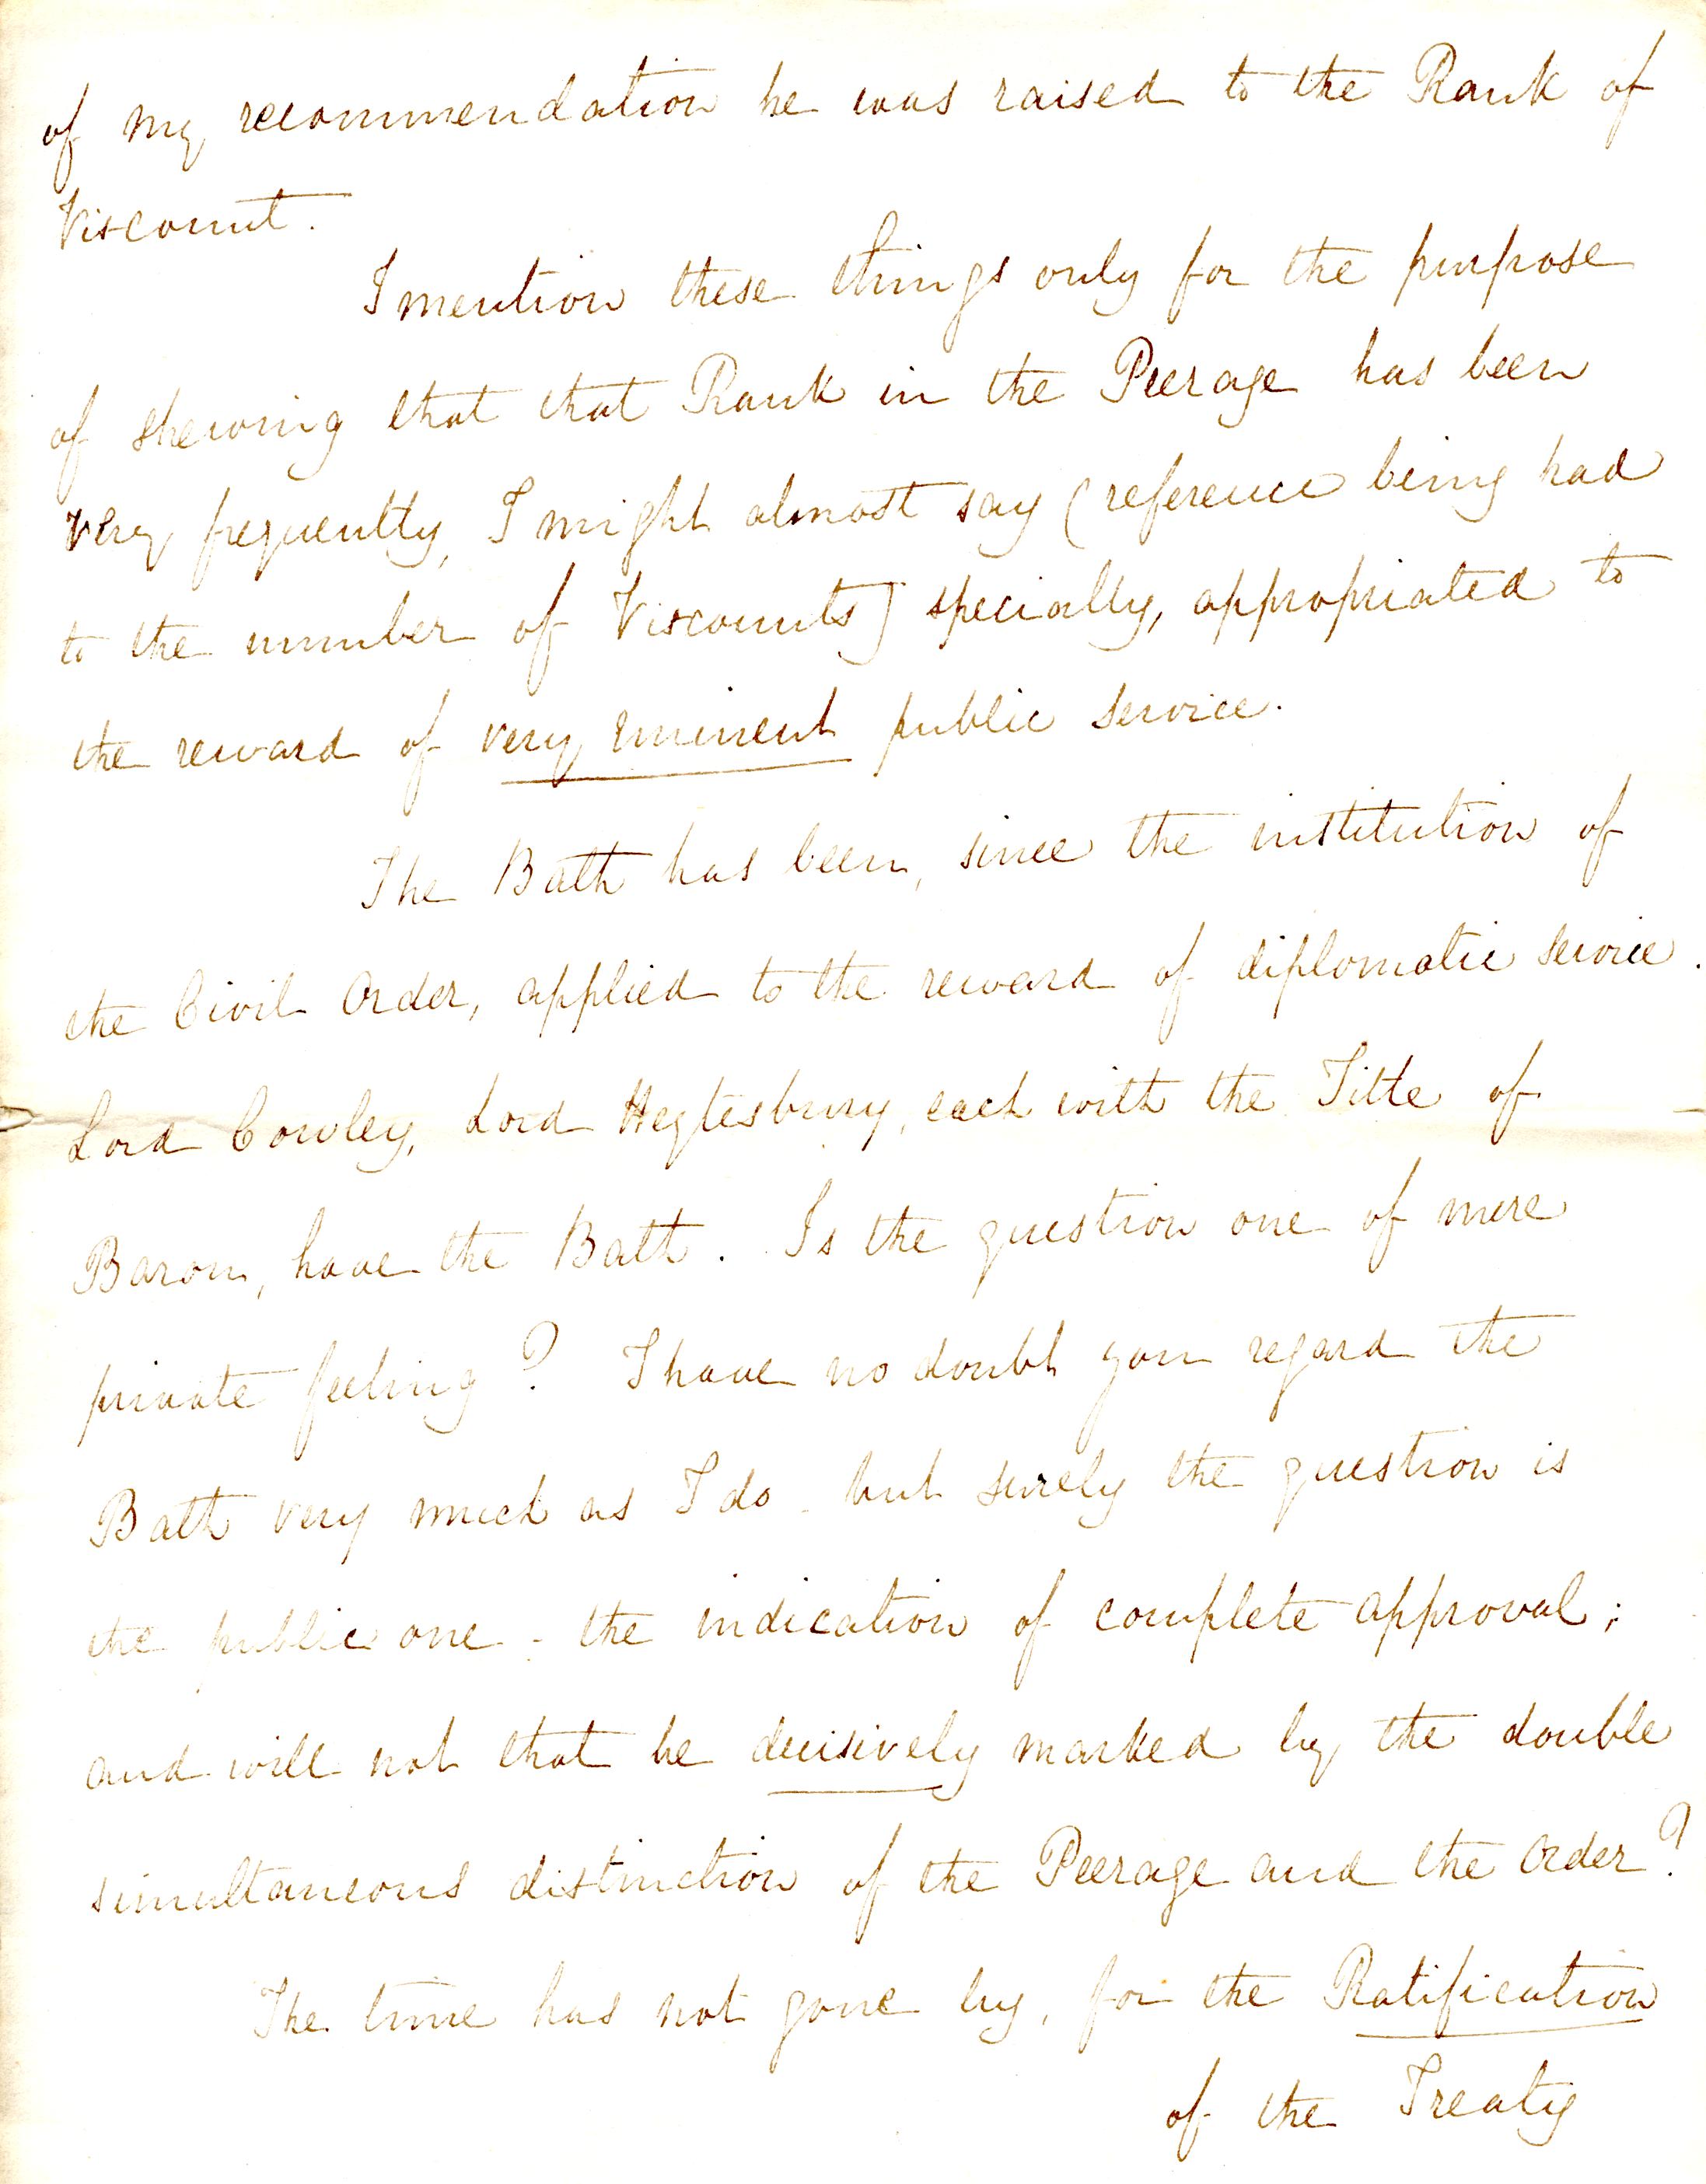 of my recommendation he was raised to the Rank of
Viscount.
I mention these things only for the purpose
of shewing that that Rank in the Peerage has been
very frequently, I might almost say (reference being had
to the number of Viscounts) specially, appropriated to
the reward of very eminent public service.
The Bath has been, since the institution of
the Civil Order, applied to the reward of diplomatic service.
Lord Cowley, Lord Heytesbury, each with the Title of
Baron, have the Bath. Is the question one of mere
private feeling? I have no doubt you regard the
Bath very much as I do - but surely the question is
the public one - the indication of complete approval;
and will not that be decisively marked by the double
simultaneous distinction of the Peerage and the Order?
The time has not gone by, for the Ratification
of the Treaty